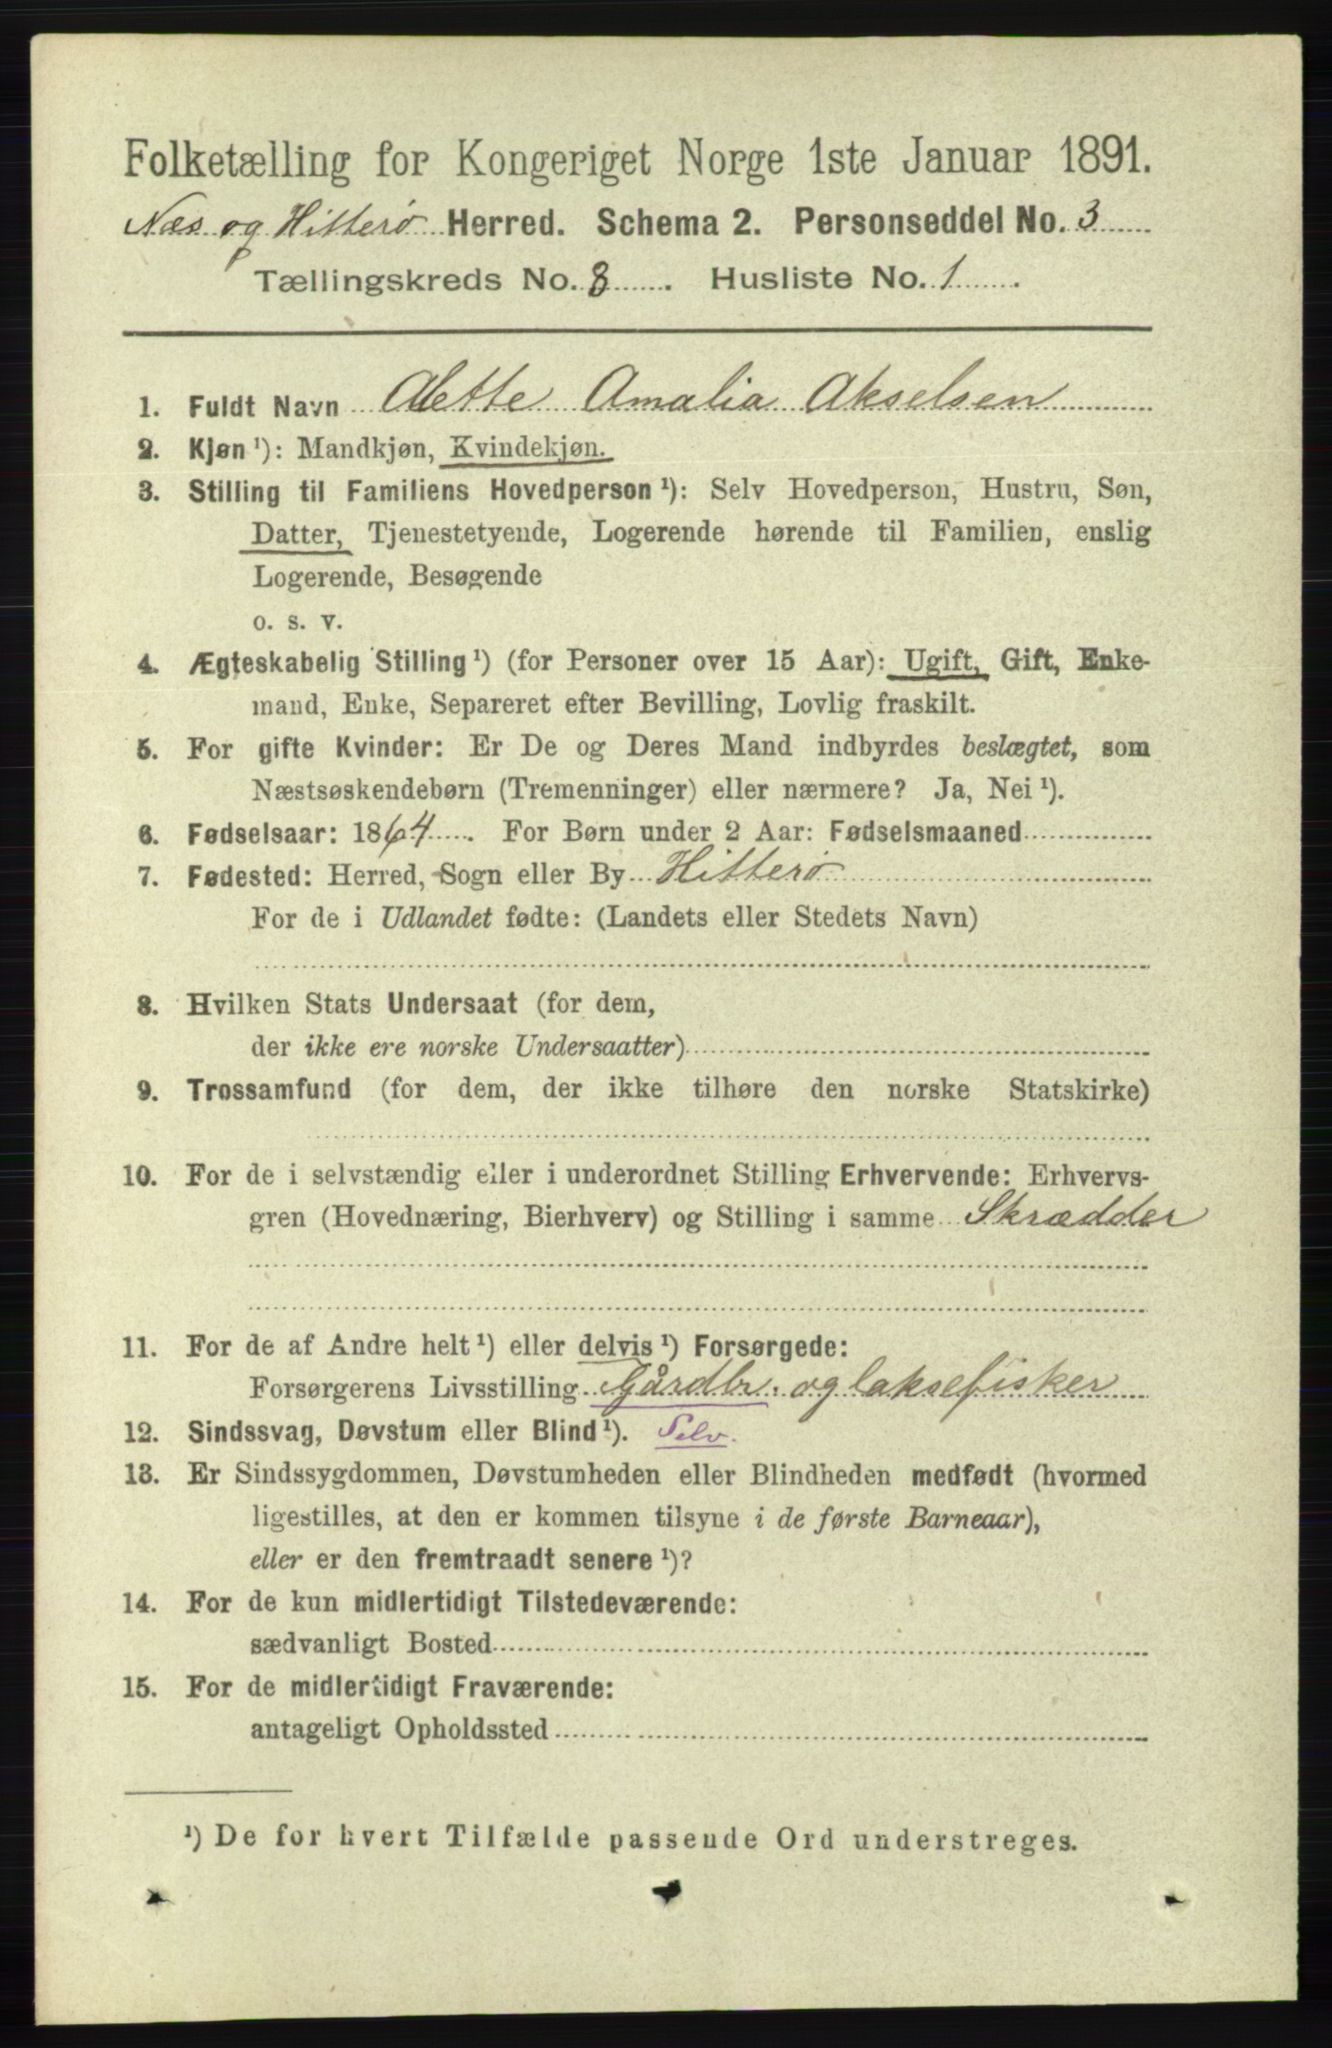 Folketælling for Kongeriget Norge 1ste Januar 1891.
Næs og Hitterø Herred. Schema 2. Personseddel No. 3
Tællingskreds No. 8. Husliste No. 1.
1. Fuldt Navn Alette Amalia Akselsen
2. Kjøn¹): Mandkjøn, Kvindekjøn.
3. Stilling til Familiens Hovedperson¹): Selv Hovedperson, Hustru, Søn,
Datter, Tjenestetyende, Logerende hørende til Familien, enslig
Logerende, Besøgende
o. s. v.
4. Ægteskabelig Stilling¹) (for Personer over 15 Aar): Ugift, Gift, Enke-
mand, Enke, Separeret efter Bevilling, Lovlig fraskilt.
5. For gifte Kvinder: Er De og Deres Mand indbyrdes beslægtet, som
Næstsøskendebørn (Tremenninger) eller nærmere? Ja, Nei¹).
6. Fødselsaar: 1864. For Børn under 2 Aar: Fødselsmaaned
7. Fødested: Herred, Sogn eller By Hitterø
For de i Udlandet fødte: (Landets eller Stedets Navn)
8. Hvilken Stats Undersaat (for dem,
der ikke ere norske Undersaatter)
9. Trossamfund (for dem, der ikke tilhøre den norske Statskirke)
10. For de i selvstændig eller i underordnet Stilling Erhvervende: Erhvervs-
gren (Hovednæring, Bierhverv) og Stilling i samme Skrædder
11. For de af Andre helt¹) eller delvis¹) Forsørgede:
Forsørgerens Livsstilling Gårdbr. og laksefisker
12. Sindssvag, Døvstum eller Blind¹). Selv.
13. Er Sindssygdommen, Døvstumheden eller Blindheden medfødt (hvormed
ligestilles, at den er kommen tilsyne i de første Barneaar),
eller er den fremtraadt senere¹)?
14. For de kun midlertidigt Tilstedeværende:
sædvanligt Bosted
15. For de midlertidigt Fraværende:
antageligt Opholdssted
¹) De for hvert Tilfælde passende Ord understreges.